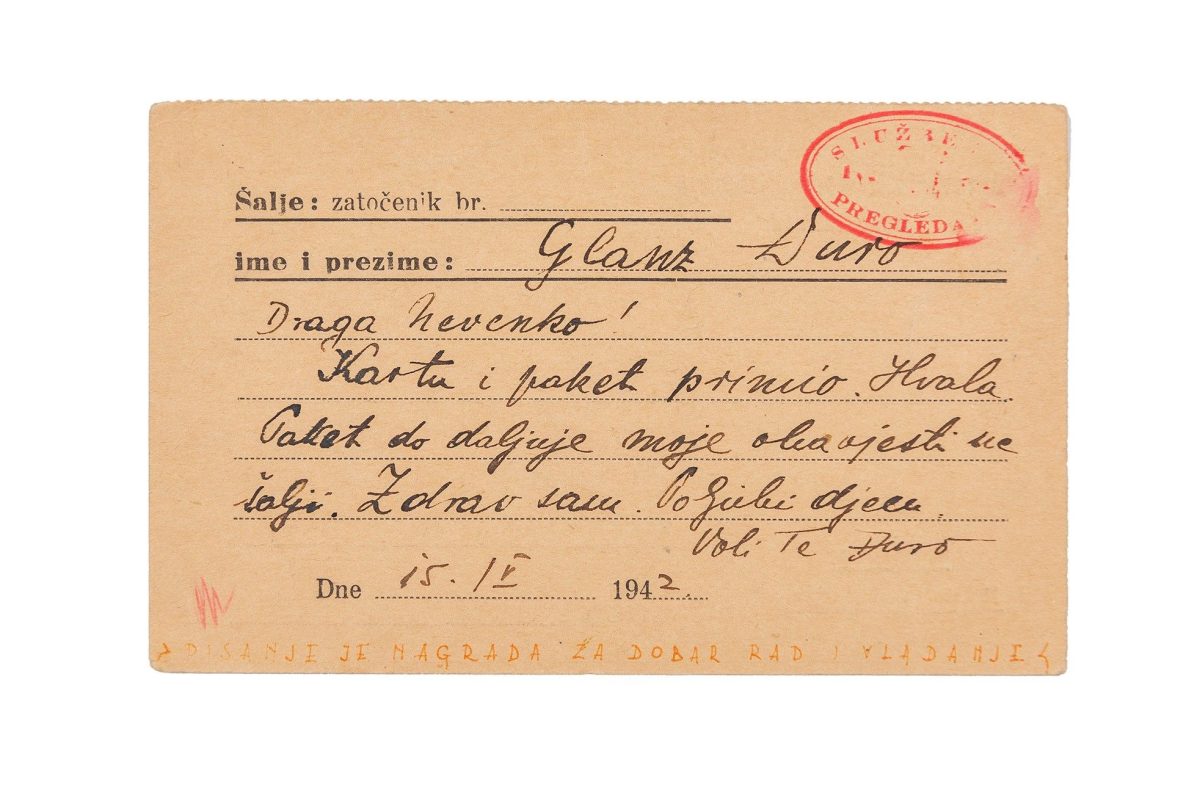 SLUŽBE
PREGLEDA
Šalje: zatočenik br.
ime i prezime: Glanz Đuro
Draga Nevenko!
Kartu i paket primio. Hvala.
Paket do daljnje moje obavjesti ne
šalji. Zdrav sam. Poljubi djecu.
Voli Te Đuro
Dne 15. IV 1942.
> DISANJE JE NAGRADA ZA DOBAR RAD I VLADANJE <